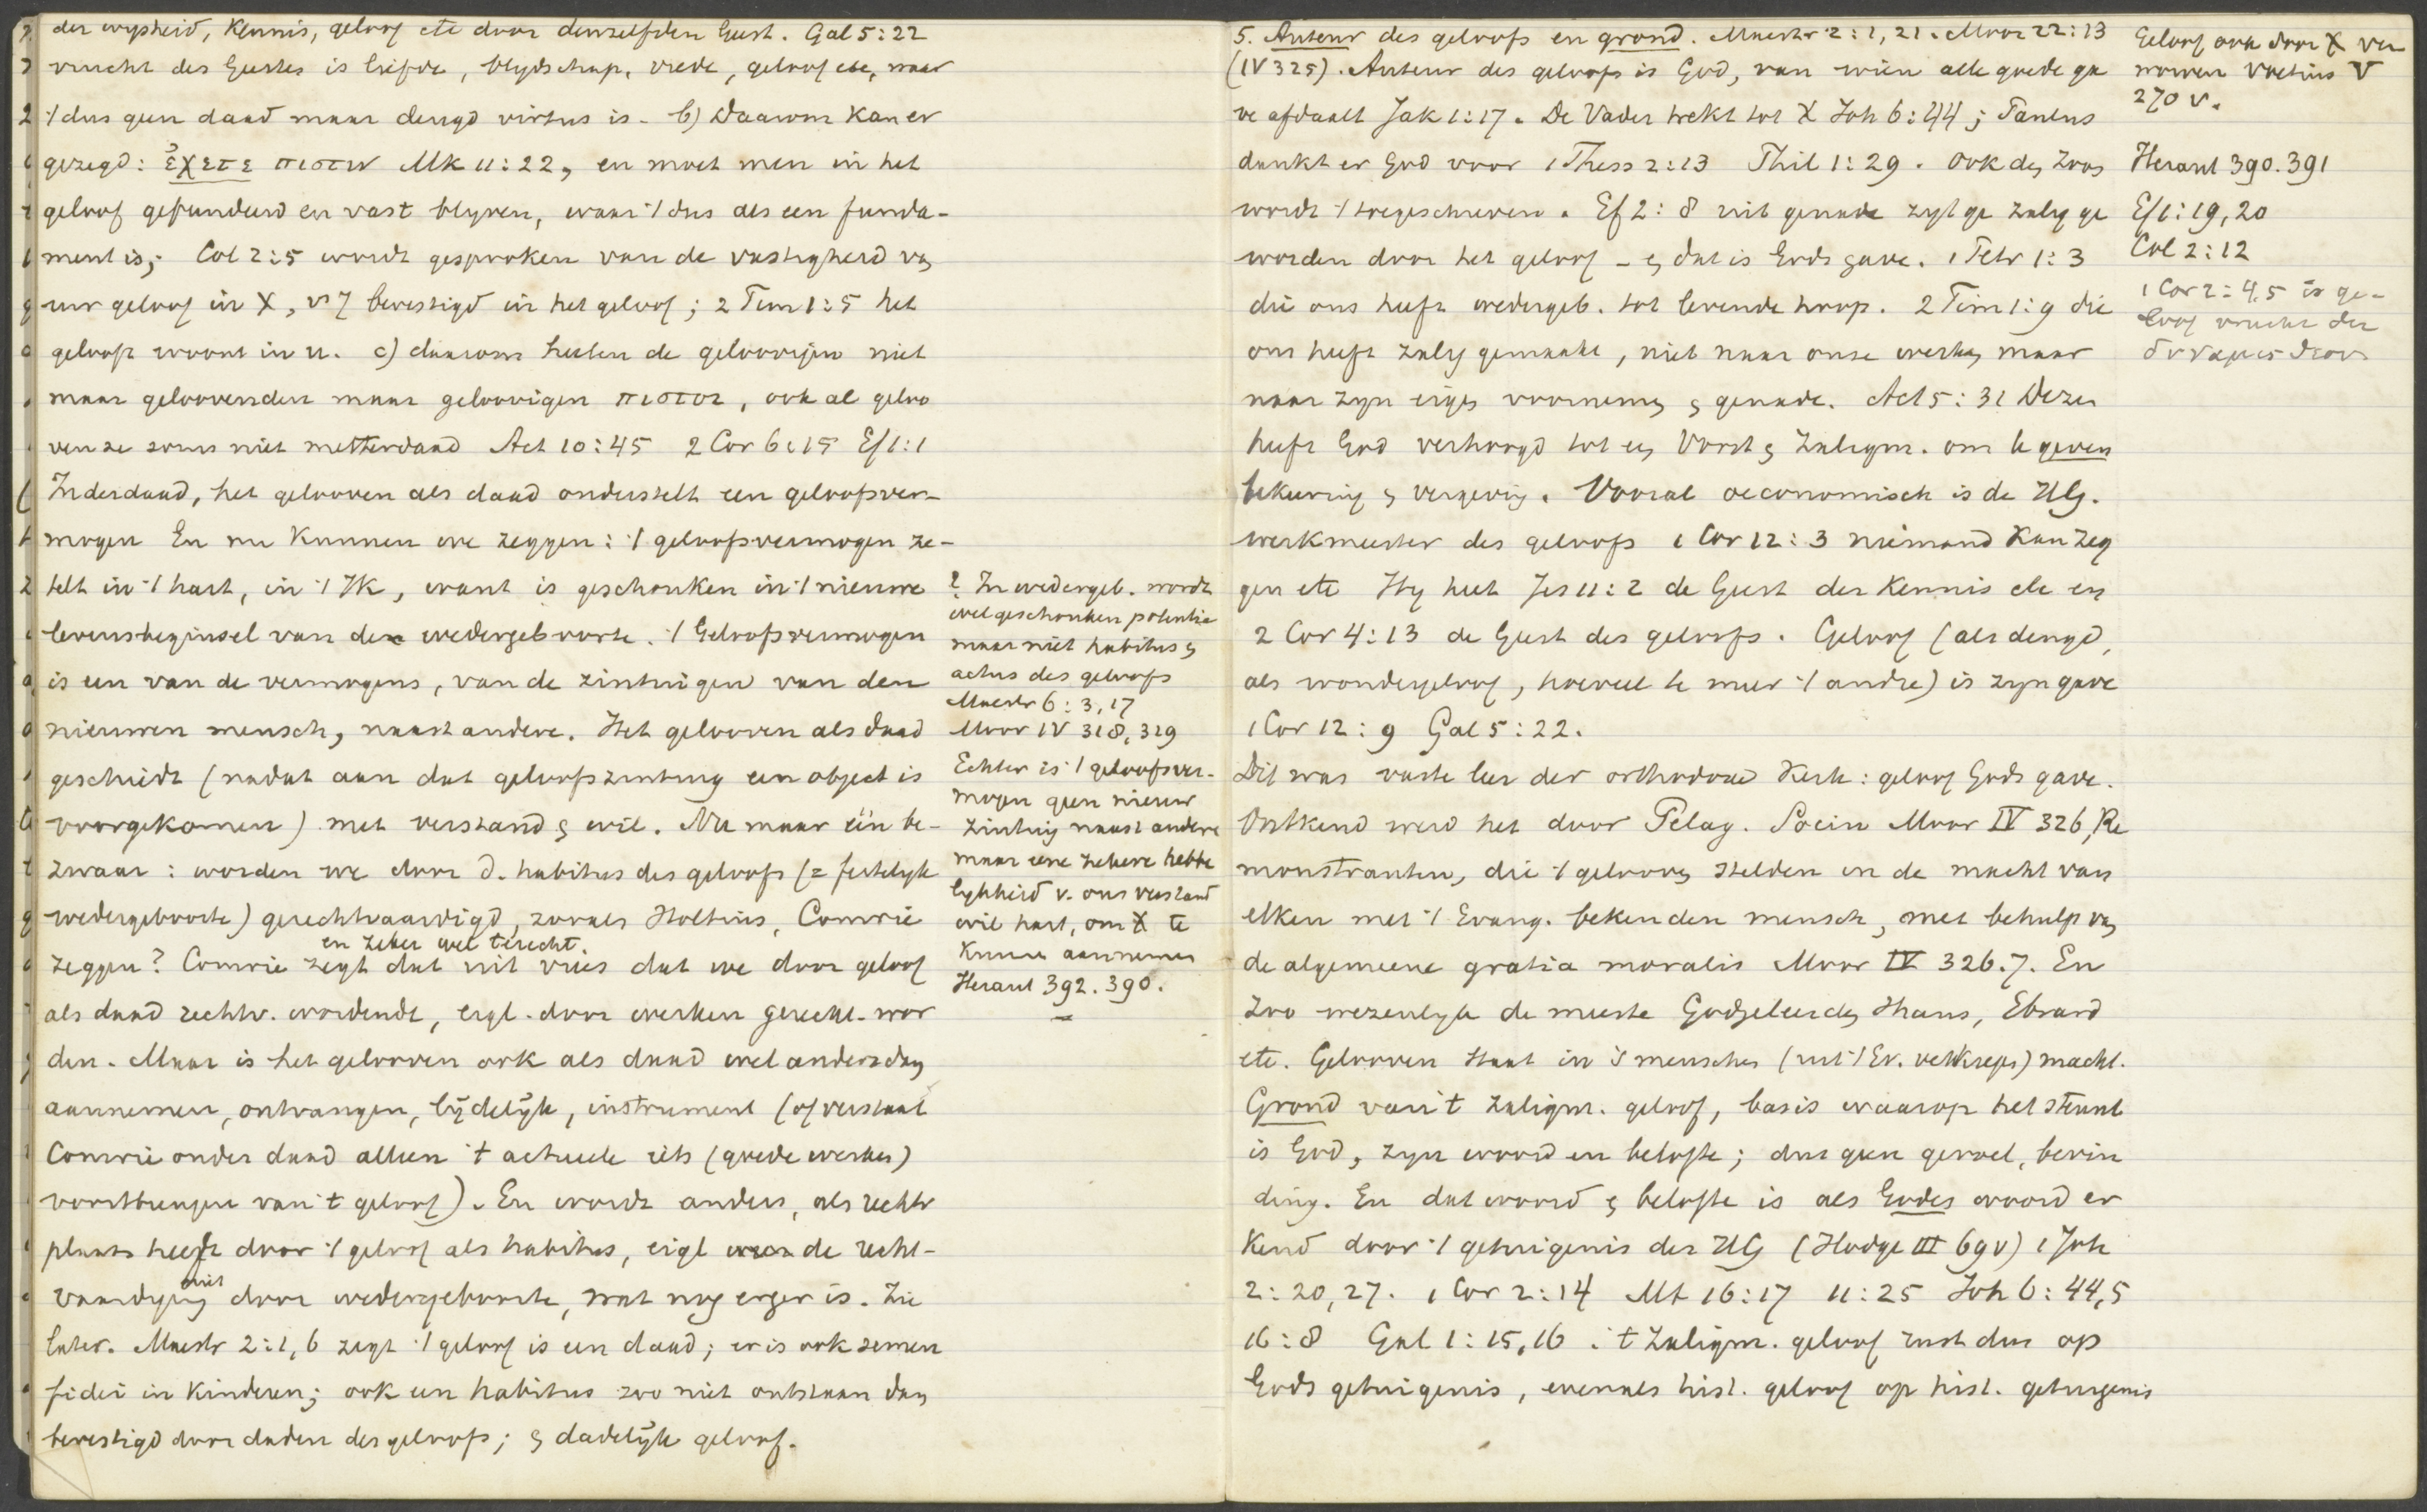 der wysheid, Kennis, geloof etc door denzelfden Geest. Gal 5:22
vrucht des Geestes is liefde, blydschap, vrede, geloof etc, waar
't dus geen daad maar deugd virtus is. b) Daarom kan er
gezegd: ἔχετε πιστιν Mk 11:22, en moet men in het
geloof gefundeerd en vast blyven, waar 't dus als een funda-
ment is; Col 2:5 wordt gesproken van de vastigheid v
uw geloof in X, vs 7 bevestigd in het geloof; 2 Tim 1:5 het
geloof woont in u. c) daarom heeten de geloovigen niet
maar geloovenden maar geloovigen πιστοι, ook al geloo
ven ze soms niet metterdaad Act 10:45 2 Cor 6:15 Ef 1:1
Inderdaad, het gelooven als daad onderstelt een geloofsver-
mogen En nu Kunnen we zeggen: 't geloofsvermogen ze-
telt in 't hart, in 't IK, want is geschonken in 't nieuwe
levensbeginsel van de wedergeboorte. 't Geloofsvermogen
is een van de vermogens, van de zintuigen van den
nieuwen mensch, naast andere. Het gelooven als daad
geschiedt (nadat aan dat geloofszintuig een object is
voorgekomen) met verstand & wil. Nu maar één be-
zwaar: worden we door d. habitus des geloofs (= feitelyk
wedergeboorte) gerechtvaardigd, zooals Holtius, Comrie
en zeker wel terecht.
zeggen? Comrie zegt dat uit vrees dat we door geloof
als daad rechtv. wordende, eigl. door werken gerecht. wor
den. Maar is het gelooven ook als daad wel anders dan
aannemen, ontvangen, lijdelijk, instrument (of verstaat
Comrie onder daad alleen 't actueele iets (goede werken)
voortbrengen van 't geloof). En wordt anders, als rechtv
plaats heeft door 't geloof als habitus, eigl de recht-
niet
vaardiging door wedergeboorte, wat nog erger is. Zie
later. Maestr 2:1,6 zegt 't geloof is een daad; er is ook semen
fidei in Kinderen; ook een habitus zoo niet ontstaan dan
bevestigd door daden des geloofs; & dadelijk geloof.
? In wedergeb. wordt
wel geschonken potentia
maar niet habitus &
actus des geloofs
Maestr 6:3,17
Moor IV 318,319
Echter is 't geloofsver-
mogen geen nieuw
zintuig naast andere
maar eene zekere hebbe
lykheid v. ons verstand
wil hart, om X te
Kunnen aannemen
Heraut 392.390.
5. Auteur des geloofs en grond. Maestr 2:1,21. Moor 22:13
(IV 325). Auteur des geloofs is God, van wien alle goede ga
ve afdaalt Jak 1:17. De Vader trekt tot X Joh 6:44; Paulus
dankt er God voor 1 Thess 2:13 Phil 1:29. Ook den Zoon
wordt 't toegeschreven. Ef 2:8 uit genade zyt ge zalig ge
worden door het geloof - & dat is Gods gave. 1 Petr 1:3
die ons heeft wedergeb. tot levende hoop. 2 Tim 1:9 die
ons heeft zalig gemaakt, niet naar onze werken maar
naar zyn eigen voornemen & genade. Act 5:31 Dezen
heeft God verhoogd tot een Vorst & Zaligm. om te geven
bekeering & vergeving. Vooral oeconomisch is de HG.
werkmeester des geloofs 1 Cor 12:3 niemand Kan zeg
gen etc Hy heet Jes 11:2 de Geest der Kennis etc en
2 Cor 4:13 de Geest des geloofs. Geloof (als deugd,
als wondergeloof, hoeveel te meer 't andre) is zyn gave
1 Cor 12:9 Gal 5:22.
Dit was vaste leer der orthodoxe Kerk: geloof Gods gave.
Ontkend werd het door Pelag. Socin Moor IV 326, Re
monstranten, die 't gelooven stelden in de macht van
elken met 't Evang. bekenden mensch, met behulp van
de algemeene gratia moralis Moor IV 326.7. En
zoo wezenlyk de meeste Godgeleerden thans, Ebrard
etc. Gelooven staat in 's menschen macht.
Grond van 't zaligm. geloof, basis waarop het steunt
is God, zyn woord en belofte; dus geen gevoel, bevin
ding. En dat woord & belofte is als Godes woord er
kend door 't getuigenis des HG (Hodge III 69v) 1 Joh
2:20,27. 1 Cor 2:14 Mt 16:17 11:25 Joh 6:44,5
16:8 Gal 1:15,16. 't Zaligm. geloof rust dus op
Gods getuigenis, evenals hist. geloof op hist. getuigenis
Geloof ook door X ver
worven Voetius V
270 v.
Heraut 390.391
Ef 1:19,20
Col 2:12
1 Cor 2:4,5 is ge-
loof vrucht der
δυναμις θεου